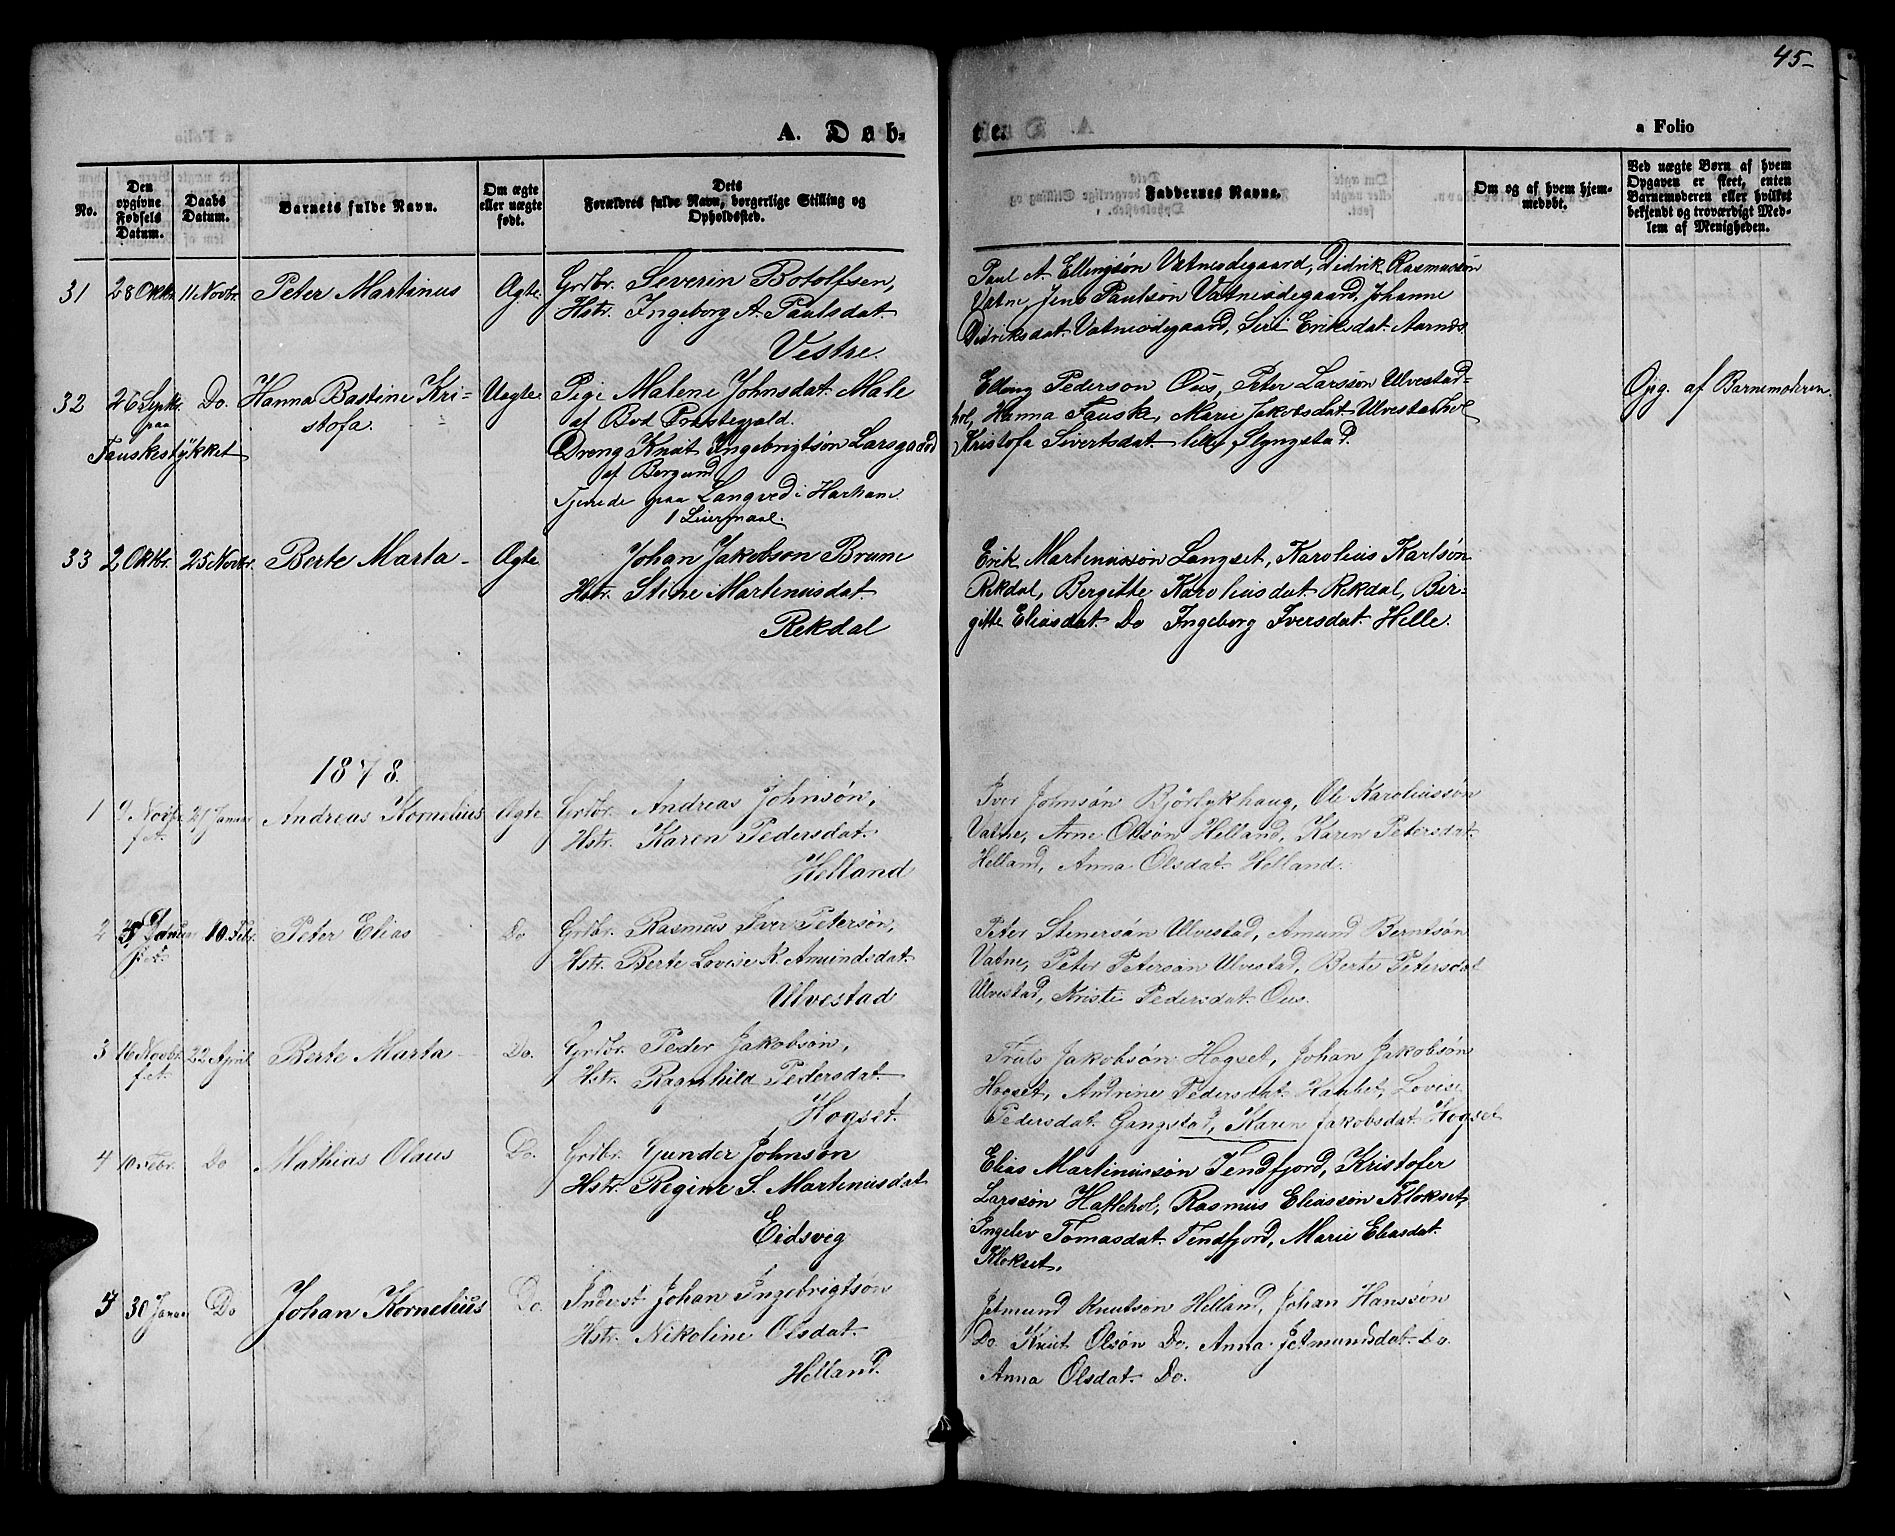 45-
A. Dåb-
te.
a Folio
No.
Den opgivne Fødsels Datum.
Daabs Datum.
Barnets fulde Navn.
Om ægte eller uægte født.
Dets
Forældres fulde Navn, borgerlige Stilling og
Opholdssted.
Faddernes Navne.
Om og af hvem hjemmedøbt.
Ved uægte Børn af hvem
Opgaven er skeet, enten
Barnemoderen eller hvilket
bekjendt og troværdigt Med-
lem af Menigheden.
31 28 Oktr. 11 Novbr. Peter Martinus Ægte Grdbr. Severin Botolfsen,
Hstr. Ingeborg A. Paulsdat.
Vestre.
Paul A. Ellingsøn Vatneødegaard, Didrik Rasmussøn
Vatne, Jens Paulsøn Vatneødegaard, Johanne
Didriksdat. Vatneødegaard, Siri Eriksdat. Aarnds.
32 26 Septbr. Do. Hanna Bastine Kri- Uægte Pige Malene Johnsdat. Male
paa stofa. af Bod Præstegjæld.
Fauskestykket Dreng Knut Ingebrigtsøn Larsgaard
af Borgund
Tjenede paa Langved i Harham.
1 Leiermaal.
Elling Pederson Ous, Peter Larssøn Ulvestad-
hol, Hanna Fausk, Marie Jakobsdat Ulvestadhol
Kristofa Sivertsdat. lille Slyngstad.
Opg. af Barnemoderen.
33 2 Oktbr. 25 Novbr. Berte Marta Ægte Johan Jakobson Brune
Hstr. Stine Martinusdat.
Rekdal
Erik Martinussøn Langset, Karolius Karlsøn
Rekdal, Bergitte Karoliusdat Rekdal, Bir-
gitte Eliasdat. Do Ingeborg Iversdat. Helle.
1878.
1 9 Novbr. 21 Januar Andreas Kornelius Ægte Grdbr. Andreas Johnsøn,
f.A. Hstr. Karen Pedersdat.
Helland
Iver Johnsøn Bjørlykhaug, Ole Karoliussøn
Vatne, Arne Olsøn Helland, Karen Petersdat.
Helland, Anna Olsdat. Helland.
2 Januar 10 Febr. Peter Elias Do Grdbr. Rasmus Iver Petersøn,
Hstr. Berte Lovise R. Amundsdat.
Ulvestad
Peter Stenersøn Ulvestad, Amund Berntsøn
Vatne, Peter Petersøn Ulvestad, Berte Petersdat
Ulvestad, Kristi Pedersdat. Ous.
3 16 Novbr. 22 April Berte Marta Do. Grdbr. Peder Jakobsøn,
f.A. Hstr. Ragnhild Pedersdat.
Hogset.
Truls Jakobsøn Hogset, Johan Jakobsøn
Hogset, Andrine Pedersdat. Hamset, Lovise
Pedersdat. Gangstad, Karen Jakobsdat. Hogset
4 10 Febr. Do Mathias Olaus Do. Grdbr. Gunder Johnsøn
Hstr. Regine S. Martinusdat
Eidsvig
Elias Martinussøn Tendfjord, Kristofer
Larssøn Hattehol, Rasmus Eliassøn Klokset,
Ingelev Tomasdat. Tendfjord, Marie Eliasdat.
Klokset.
5 30 Januar Do Johan Kornelius Do. Inderst Johan Ingebrigtsøn
Hstr. Nikoline Olsdat.
Helland.
Jetmund Knutsøn Helland, Johan Hanssøn
Do. Knut Olsøn Do. Anna Jetmundsdat. Do.
Anna Olsdat. Do.